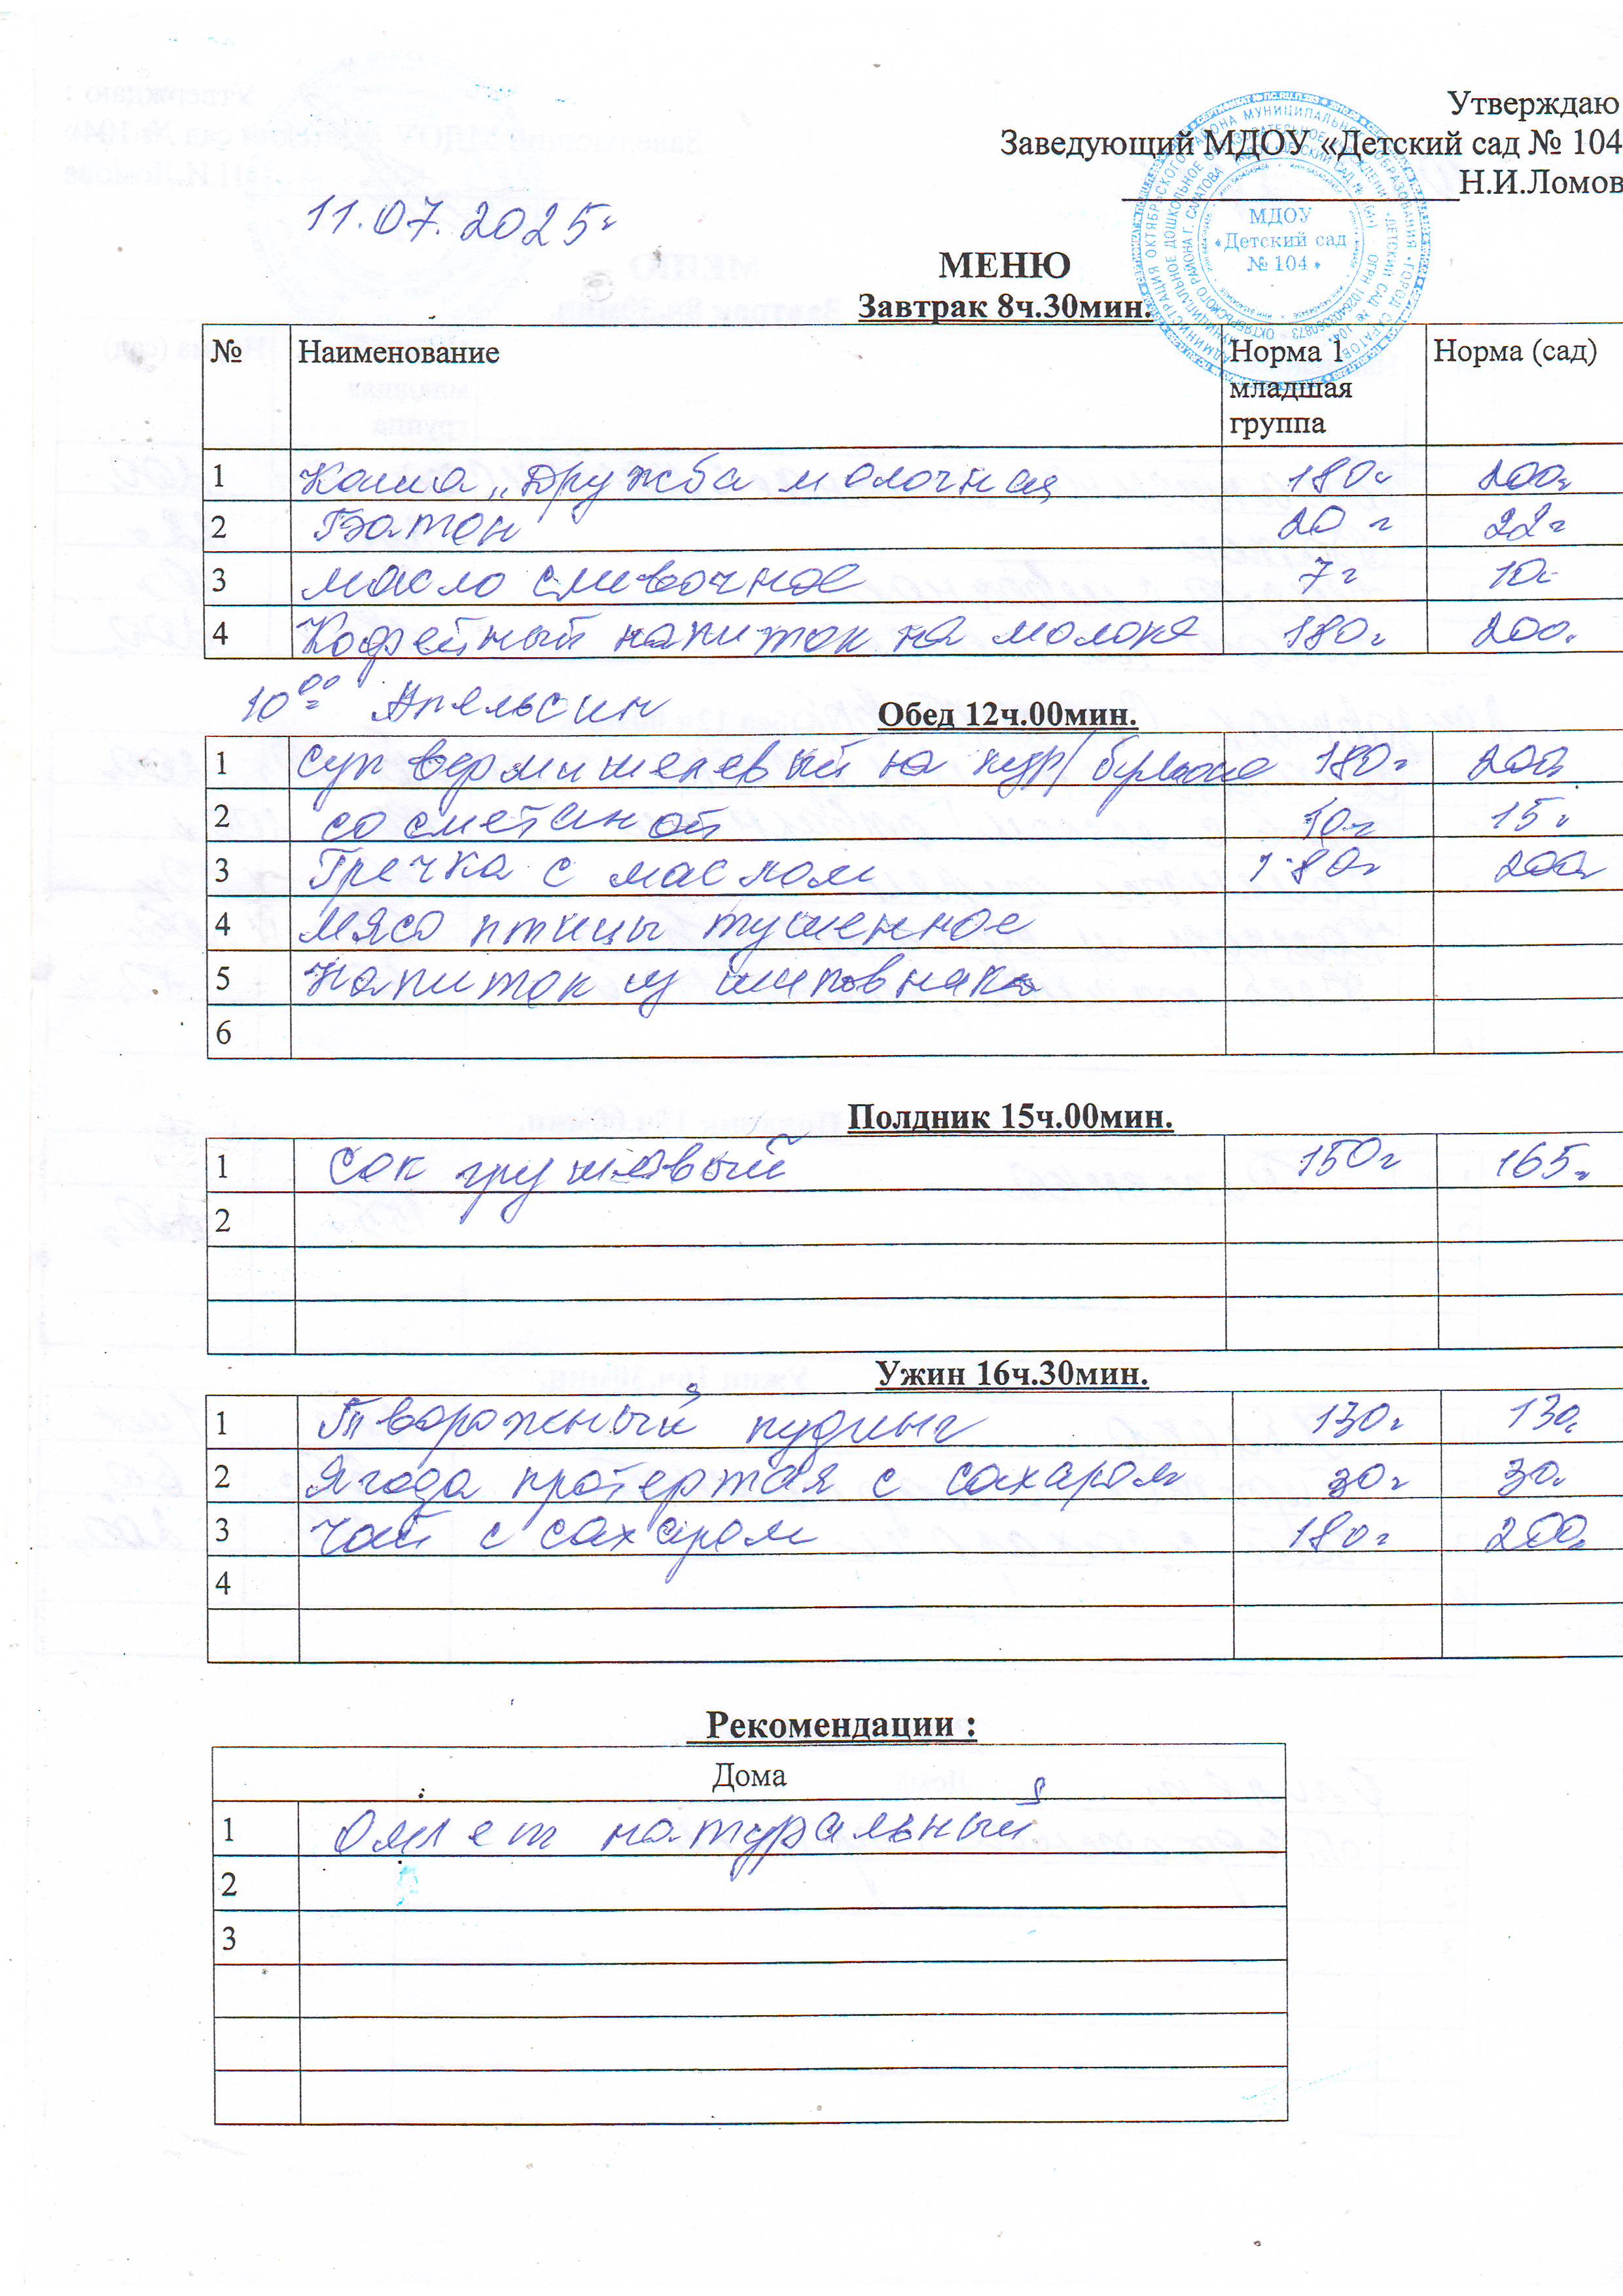 Утверждаю
Заведующий МДОУ «Детский сад № 104
Н.И.Ломов
11.07.2025г
МДОУ
«Детский сад
№ 104»
МЕНЮ
Завтрак 8ч.30мин.
№ Наименование Норма 1 младшая группа Норма (сад)
1 Каша „Дружба молочная 180г 200г
2 Батон 20 г 22г
3 масло сливочное 7г 10г
4 Кофейный напиток на молоке 180г 200г
10⁰⁰ Апельсин
Обед 12ч.00мин.
1 суп вермишелевый на кур/бульоне 180г 200г
2 со сметаной 10г 15г
3 Гречка с маслом 180г 200г
4 Мясо птицы тушенное
5 Напиток из шиповника
6
Полдник 15ч.00мин.
1 Сок грушевый 150г 165г
2
Ужин 16ч.30мин.
1 Творожный пудинг 130г 130г
2 Ягода протертая с сахаром 30г 30г
3 Чай с сахаром 180г 200г
4
Рекомендации :
Дома
1 Омлет натуральный
2
3